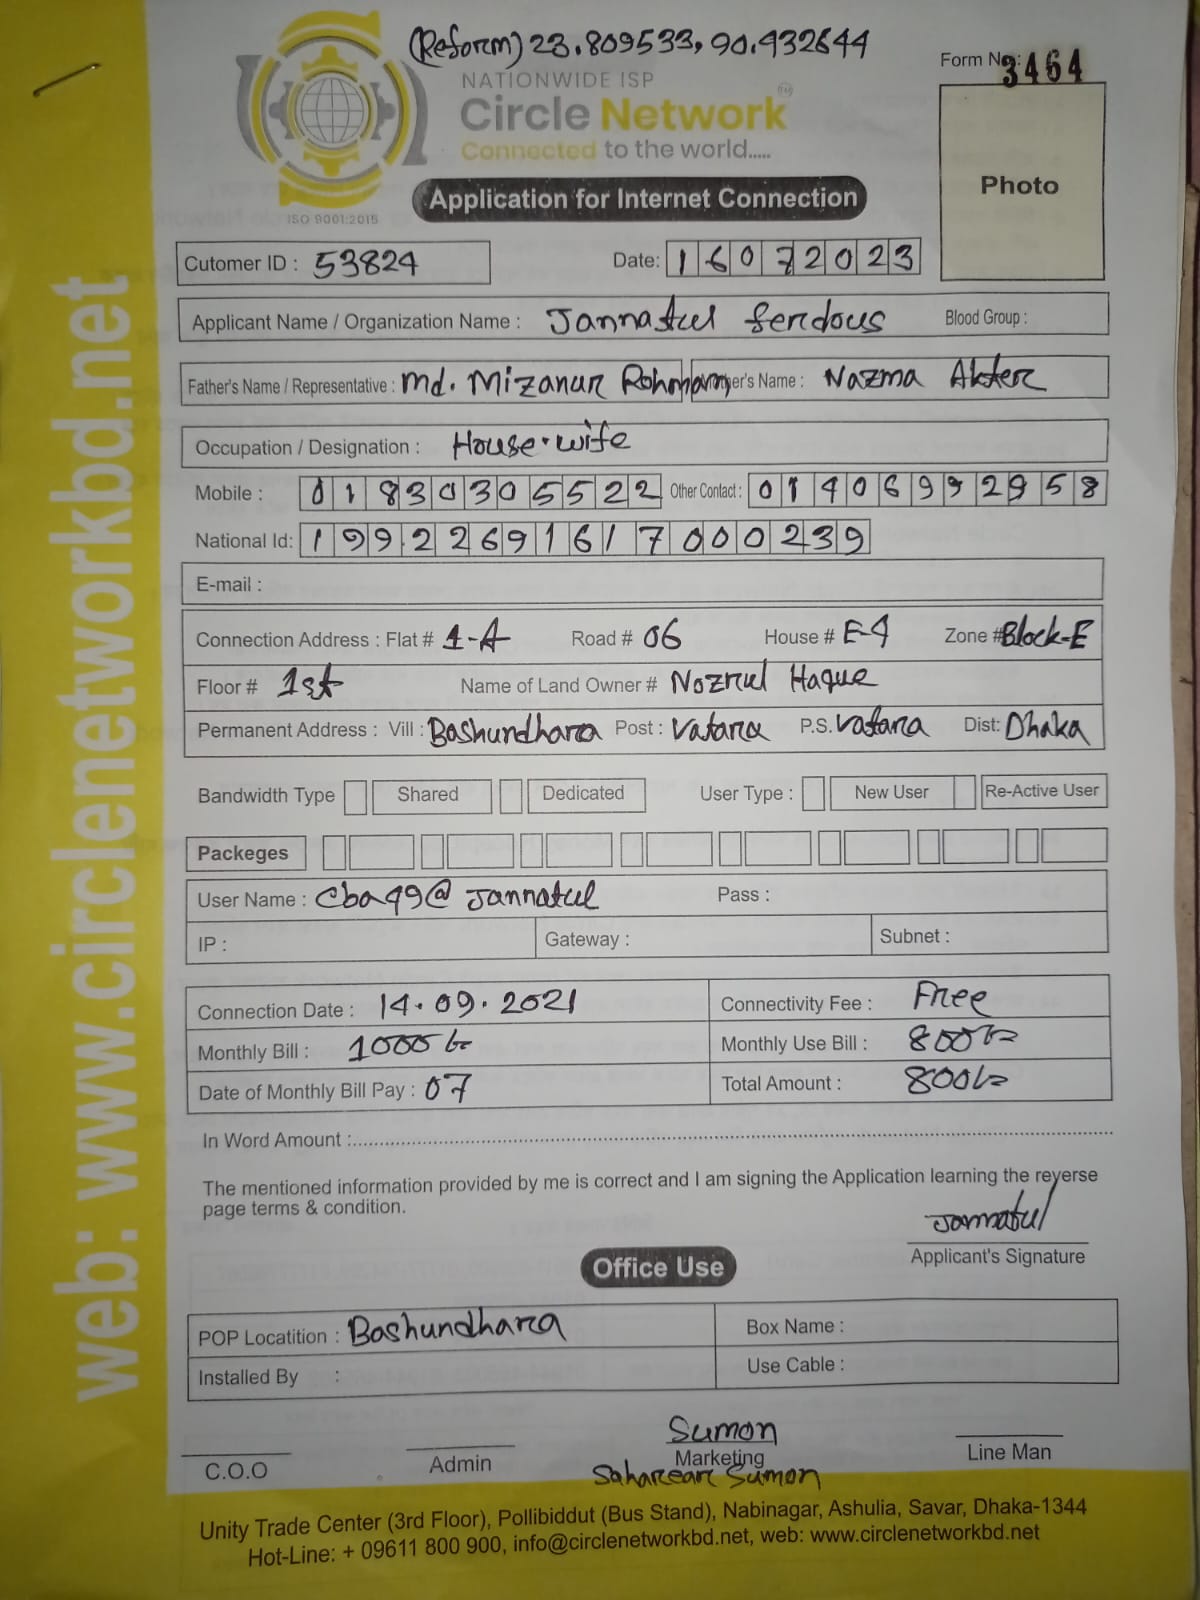 (Reform) 23.809533, 90.432644
Form No: 3464
NATIONWIDE ISP
Circle Network
Connected to the world.....
ISO 9001:2015
Application for Internet Connection
Photo
Cutomer ID : 53824 Date: 16072023
Applicant Name / Organization Name : Jannatul ferdous Blood Group :
Father's Name / Representative : Md. Mizanur Rohman Mother's Name : Nazma Akter
Occupation / Designation : House-wife
Mobile : 01830305522 Other Contact : 01406992958
National Id: 19922691617000239
E-mail :
Connection Address : Flat # 1-A Road # 06 House # E-4 Zone # Block-E
Floor # 1st Name of Land Owner # Nozrul Haque
Permanent Address : Vill : Bashundhara Post : Vatara P.S. Vatara Dist: Dhaka
Bandwidth Type Shared Dedicated User Type : New User Re-Active User
Packeges
User Name : Cba99@Jannatul Pass :
IP : Gateway : Subnet :
Connection Date : 14.09.2021 Connectivity Fee : Free
Monthly Bill : 1000 Monthly Use Bill : 800
Date of Monthly Bill Pay : 07 Total Amount : 800
In Word Amount :
The mentioned information provided by me is correct and I am signing the Application learning the reverse
page terms & condition.
Jannatul
Applicant's Signature
Office Use
POP Locatition : Bashundhara Box Name :
Installed By : Use Cable :
Sumon
C.O.O Admin Marketing Line Man
Saharear Sumon
Unity Trade Center (3rd Floor), Pollibiddut (Bus Stand), Nabinagar, Ashulia, Savar, Dhaka-1344
Hot-Line: + 09611 800 900, info@circlenetworkbd.net, web: www.circlenetworkbd.net
web: www.circlenetworkbd.net